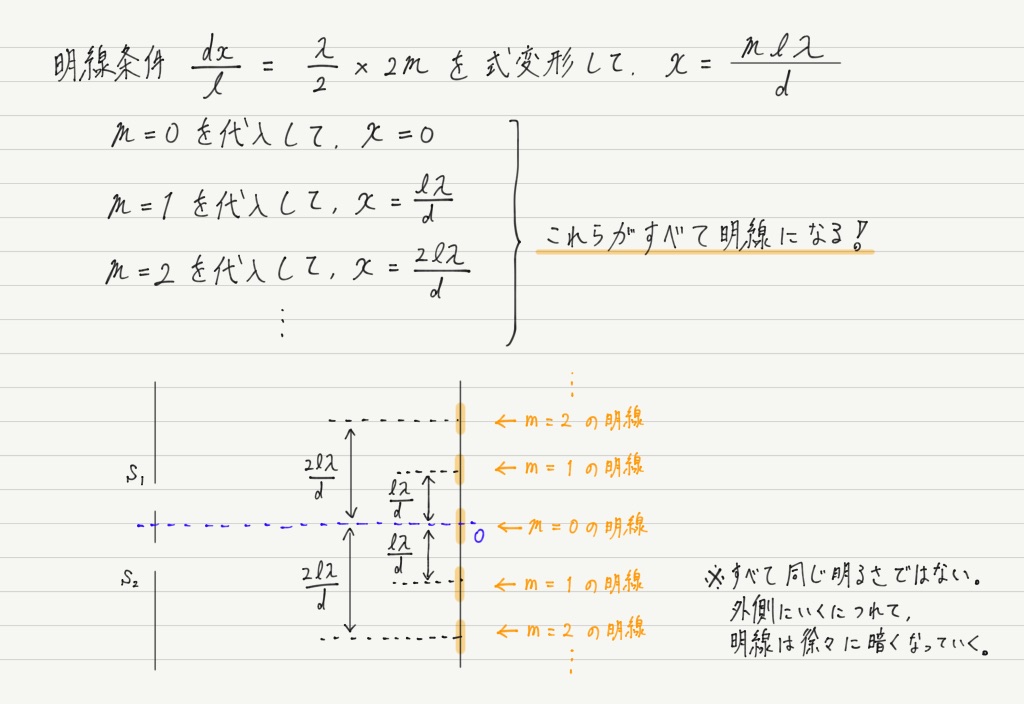 明線条件 dx/l = λ/2 × 2m を 式変形して. x = mlλ/d
m = 0 を代入して. x = 0
m = 1 を代入して, x = lλ/d
m = 2 を代入して, x = 2lλ/d
⋮
これらがすべて明線になる!
⋮
← m = 2 の明線
2lλ/d
S₁
← m = 1 の明線
lλ/d
0
← m = 0 の明線
lλ/d
2lλ/d
S₂
← m = 1 の明線
← m = 2 の明線
⋮
※すべて同じ明るさではない。
外側にいくにつれて,
明線は徐々に暗くなっていく。